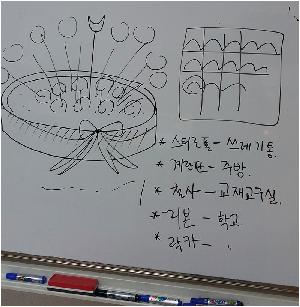 * 스티로폼 - 쓰레기통.
* 계란판 - 주방.
* 철사 - 교재교구실.
* 리본 - 학교
* 락카 -